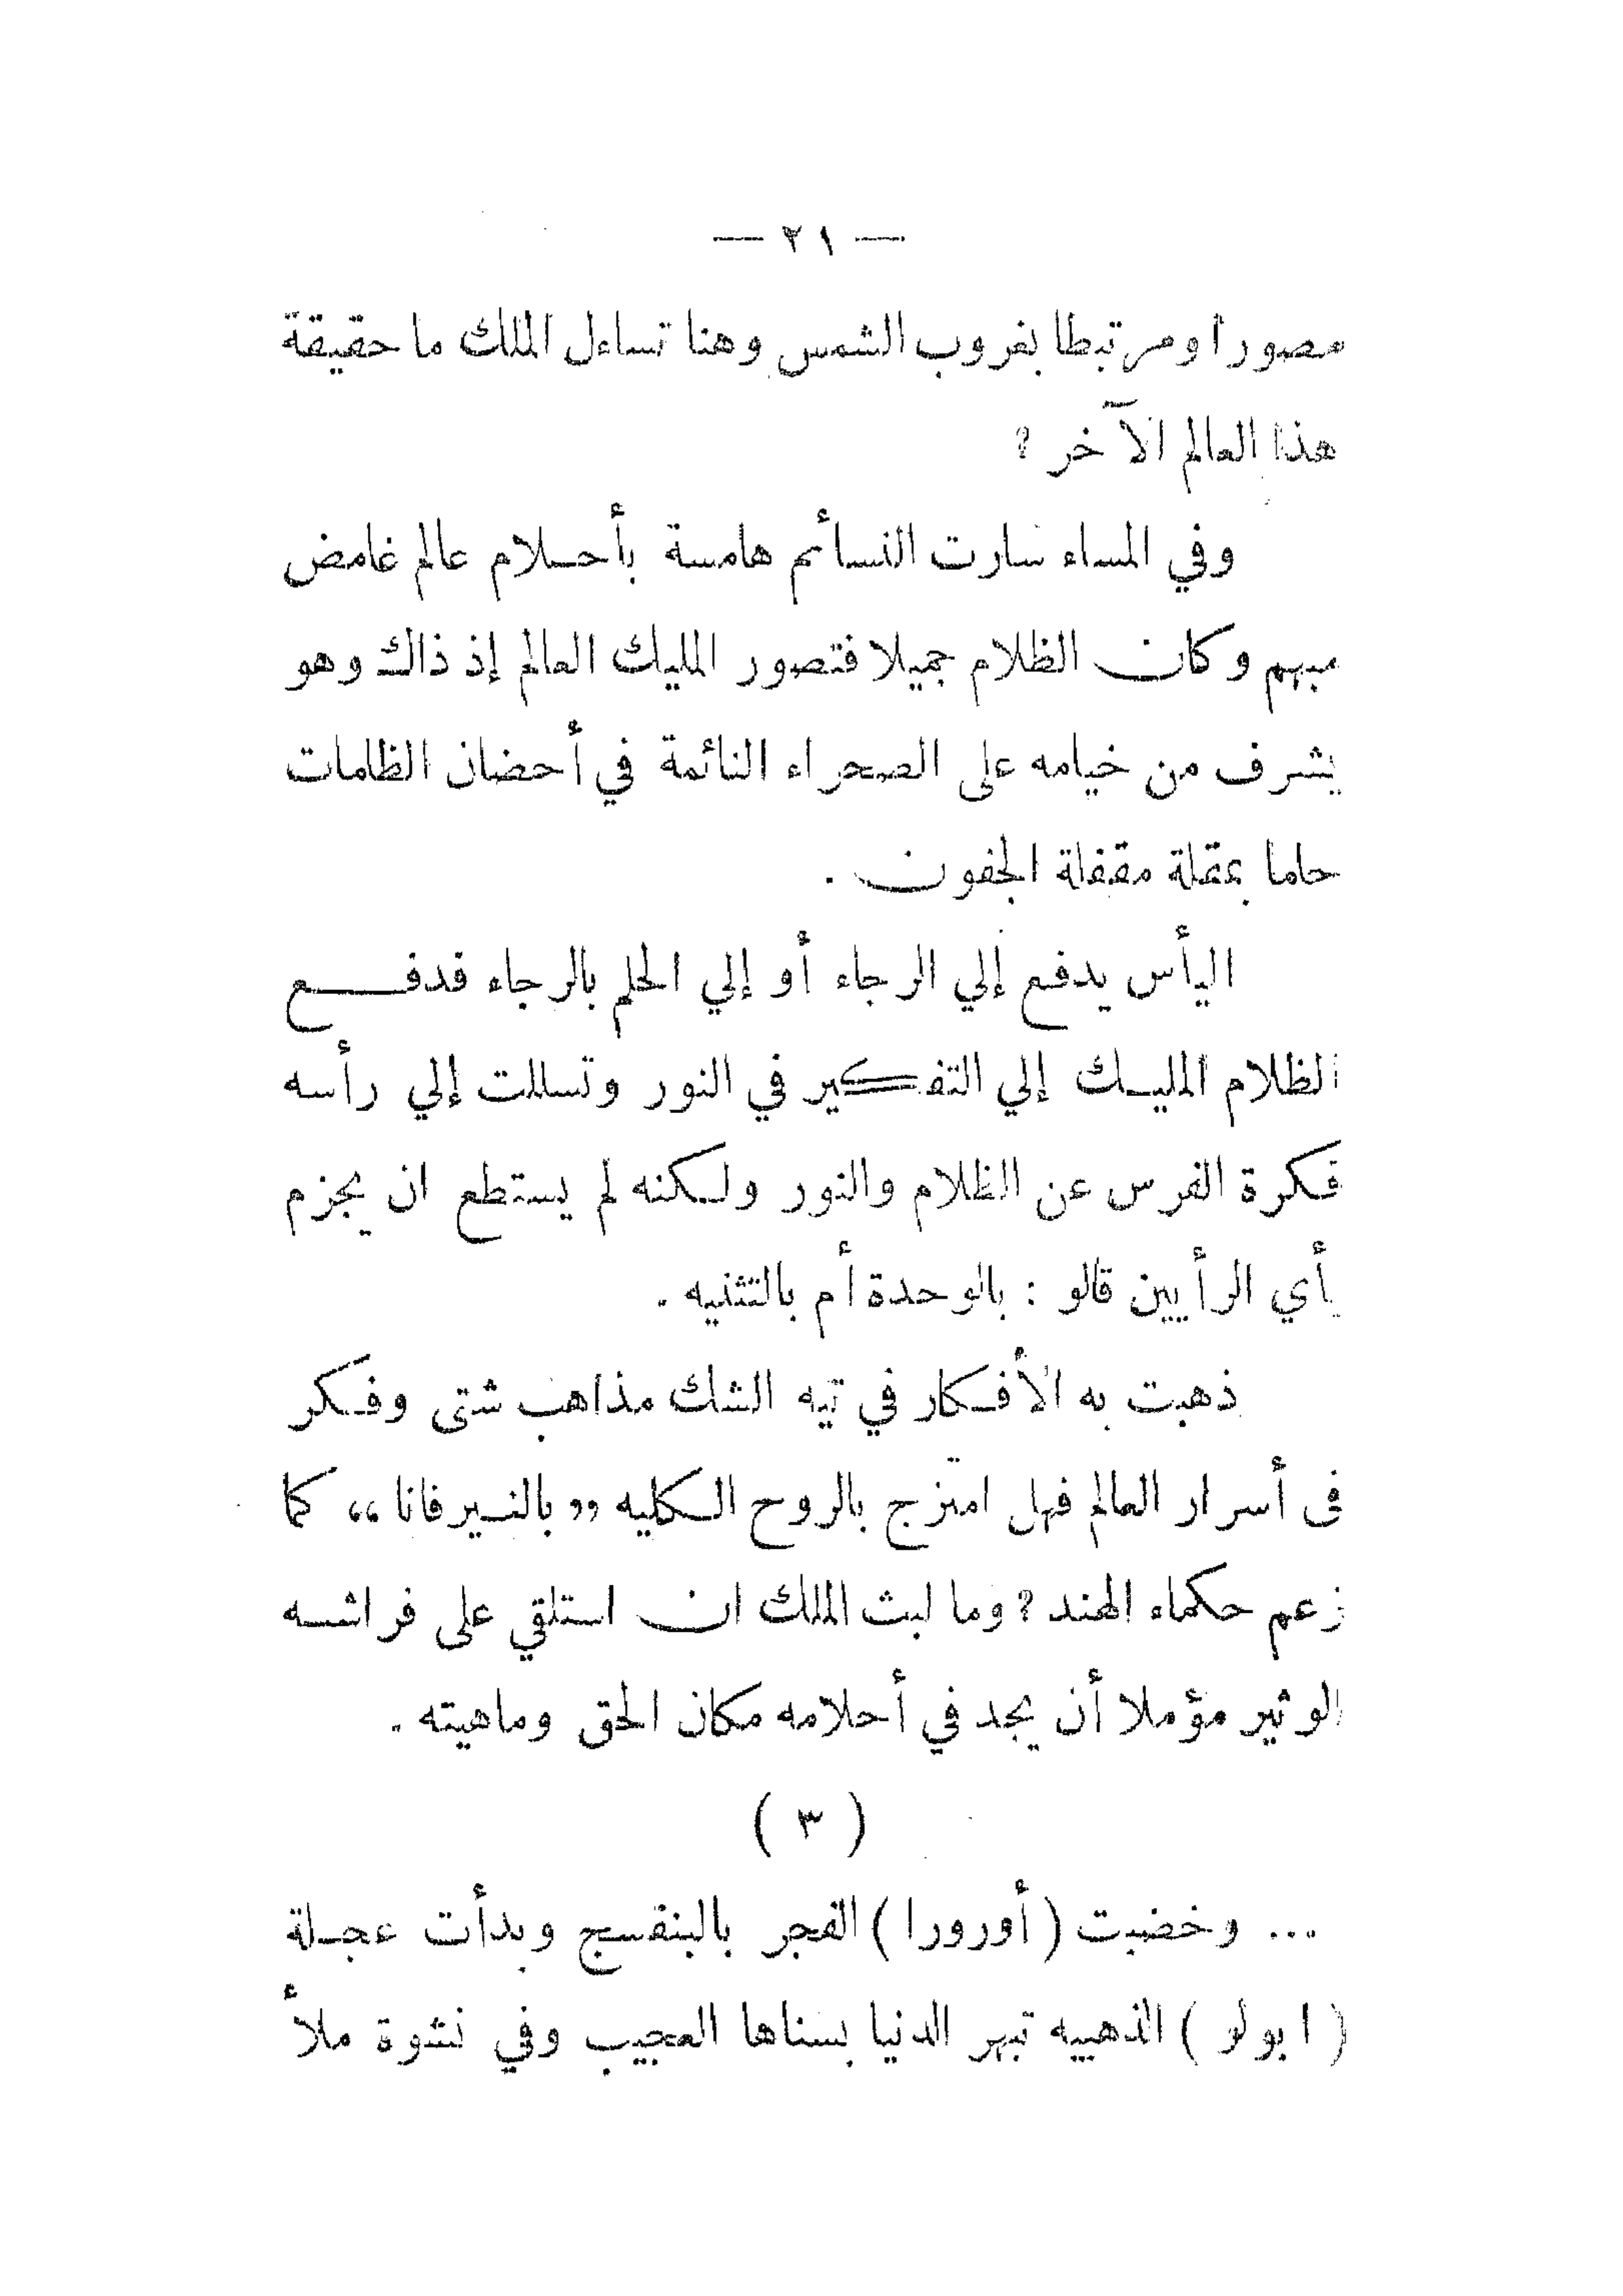 — ٢١ —
مصورا ومرتبطا بغروب الشمس وهنا تساءل الملك ما حقيقة
هذا العالم الآخر ؟
وفي المساء سارت النسائم هامسة بأحلام عالم غامض
مبهم وكان الظلام جميلا فتصور المليك العالم إذ ذاك وهو
يشرف من خيامه على الصحراء النائمة في أحضان الظلمات
حلما بمقلة مقفلة الجفون .
اليأس يدفع إلي الرجاء أو إلي الحلم بالرجاء فدفع
الظلام المليك إلي التفكير في النور وتسللت إلي رأسه
فكرة الفرس عن الظلام والنور ولكنه لم يستطع ان يجزم
بأي الرأيين قالو : بالوحدة أم بالتثنيه .
ذهبت به الأفكار في تيه الشك مذاهب شتى وفكر
فى أسرار العالم فهل امتزج بالروح الكليه ,, بالنيرفانا ،، كما
زعم حكماء الهند ؟ وما لبث الملك ان استلقي على فراشه
الوثير مؤملا أن يجد في أحلامه مكان الحق وماهيته .
( ٣ )
... وخضبت ( أورورا ) الفجر بالبنفسج وبدأت عجلة
( ابولو ) الذهبيه تبهر الدنيا بسناها العجيب وفي نشوة ملأ